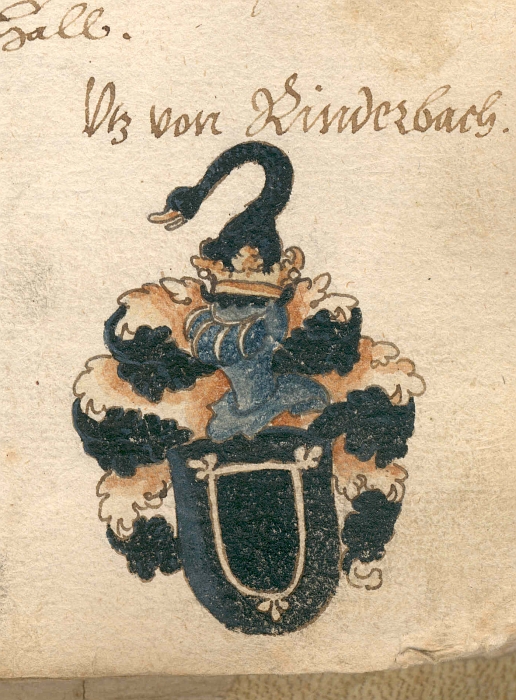 Hall.
Utz von Rinderbach.